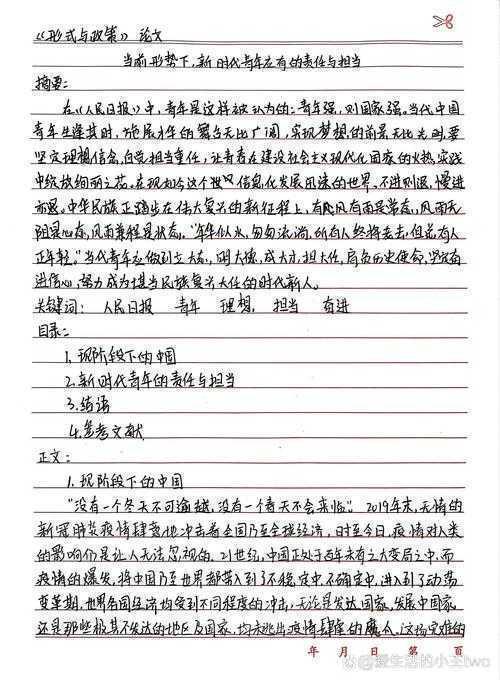 《形式与政策》论文
当前形势下，新时代青年应有的责任与担当
摘要：
在《人民日报》中，青年是这样被认为的：青年强，则国家强。当代中国
青年生逢其时，施展才华的舞台无比广阔，实现梦想的前景无比光明。要
坚定理想信念，自觉担当重任，让青春在建设社会主义现代化国家的火热实践
中绽放绚丽之花。在现如今这个世界信息化发展迅速的世界，不进则退，慢进
亦退。中华民族正踏步在伟大复兴的新征程上，有风有雨是常态，风雨无
阻是心态，风雨兼程是状态。"年年似水，匆匆流淌，所有人终将老去，但总有人
正年轻。"当代青年应做到立大志，明大德，成大才，担大任，肩负历史使命，坚定前
进信心，努力成为堪当民族复兴大任的时代新人。
关键词： 人民日报 青年 理想， 担当 奋进
目录：
1.现阶段下的中国
2.新时代青年的责任与担当
3.结语
4.参考文献
正文：
1.现阶段下的中国
"没有一个冬天不可逾越，没有一个春天不会来临"。2019年末，无情的
新冠肺炎疫情肆虐地冲击着全国乃至全球经济，时至今日，疫情对人类
的影响仍是让人无法忽视的。21世纪，中国正处于百年未有之大变局之中，而
疫情的爆发，将中国乃至世界都带入到了不稳定中，不确定中，进入到了动荡
变革期，世界各国经济均受到不同程度的冲击，无论是发达国家，发展中国家，
还是那些极其不发达的地区及国家，均未逃出疫情肆虐的魔爪。这场灾难的
年 月 日 第 页
@爱生活的小王two